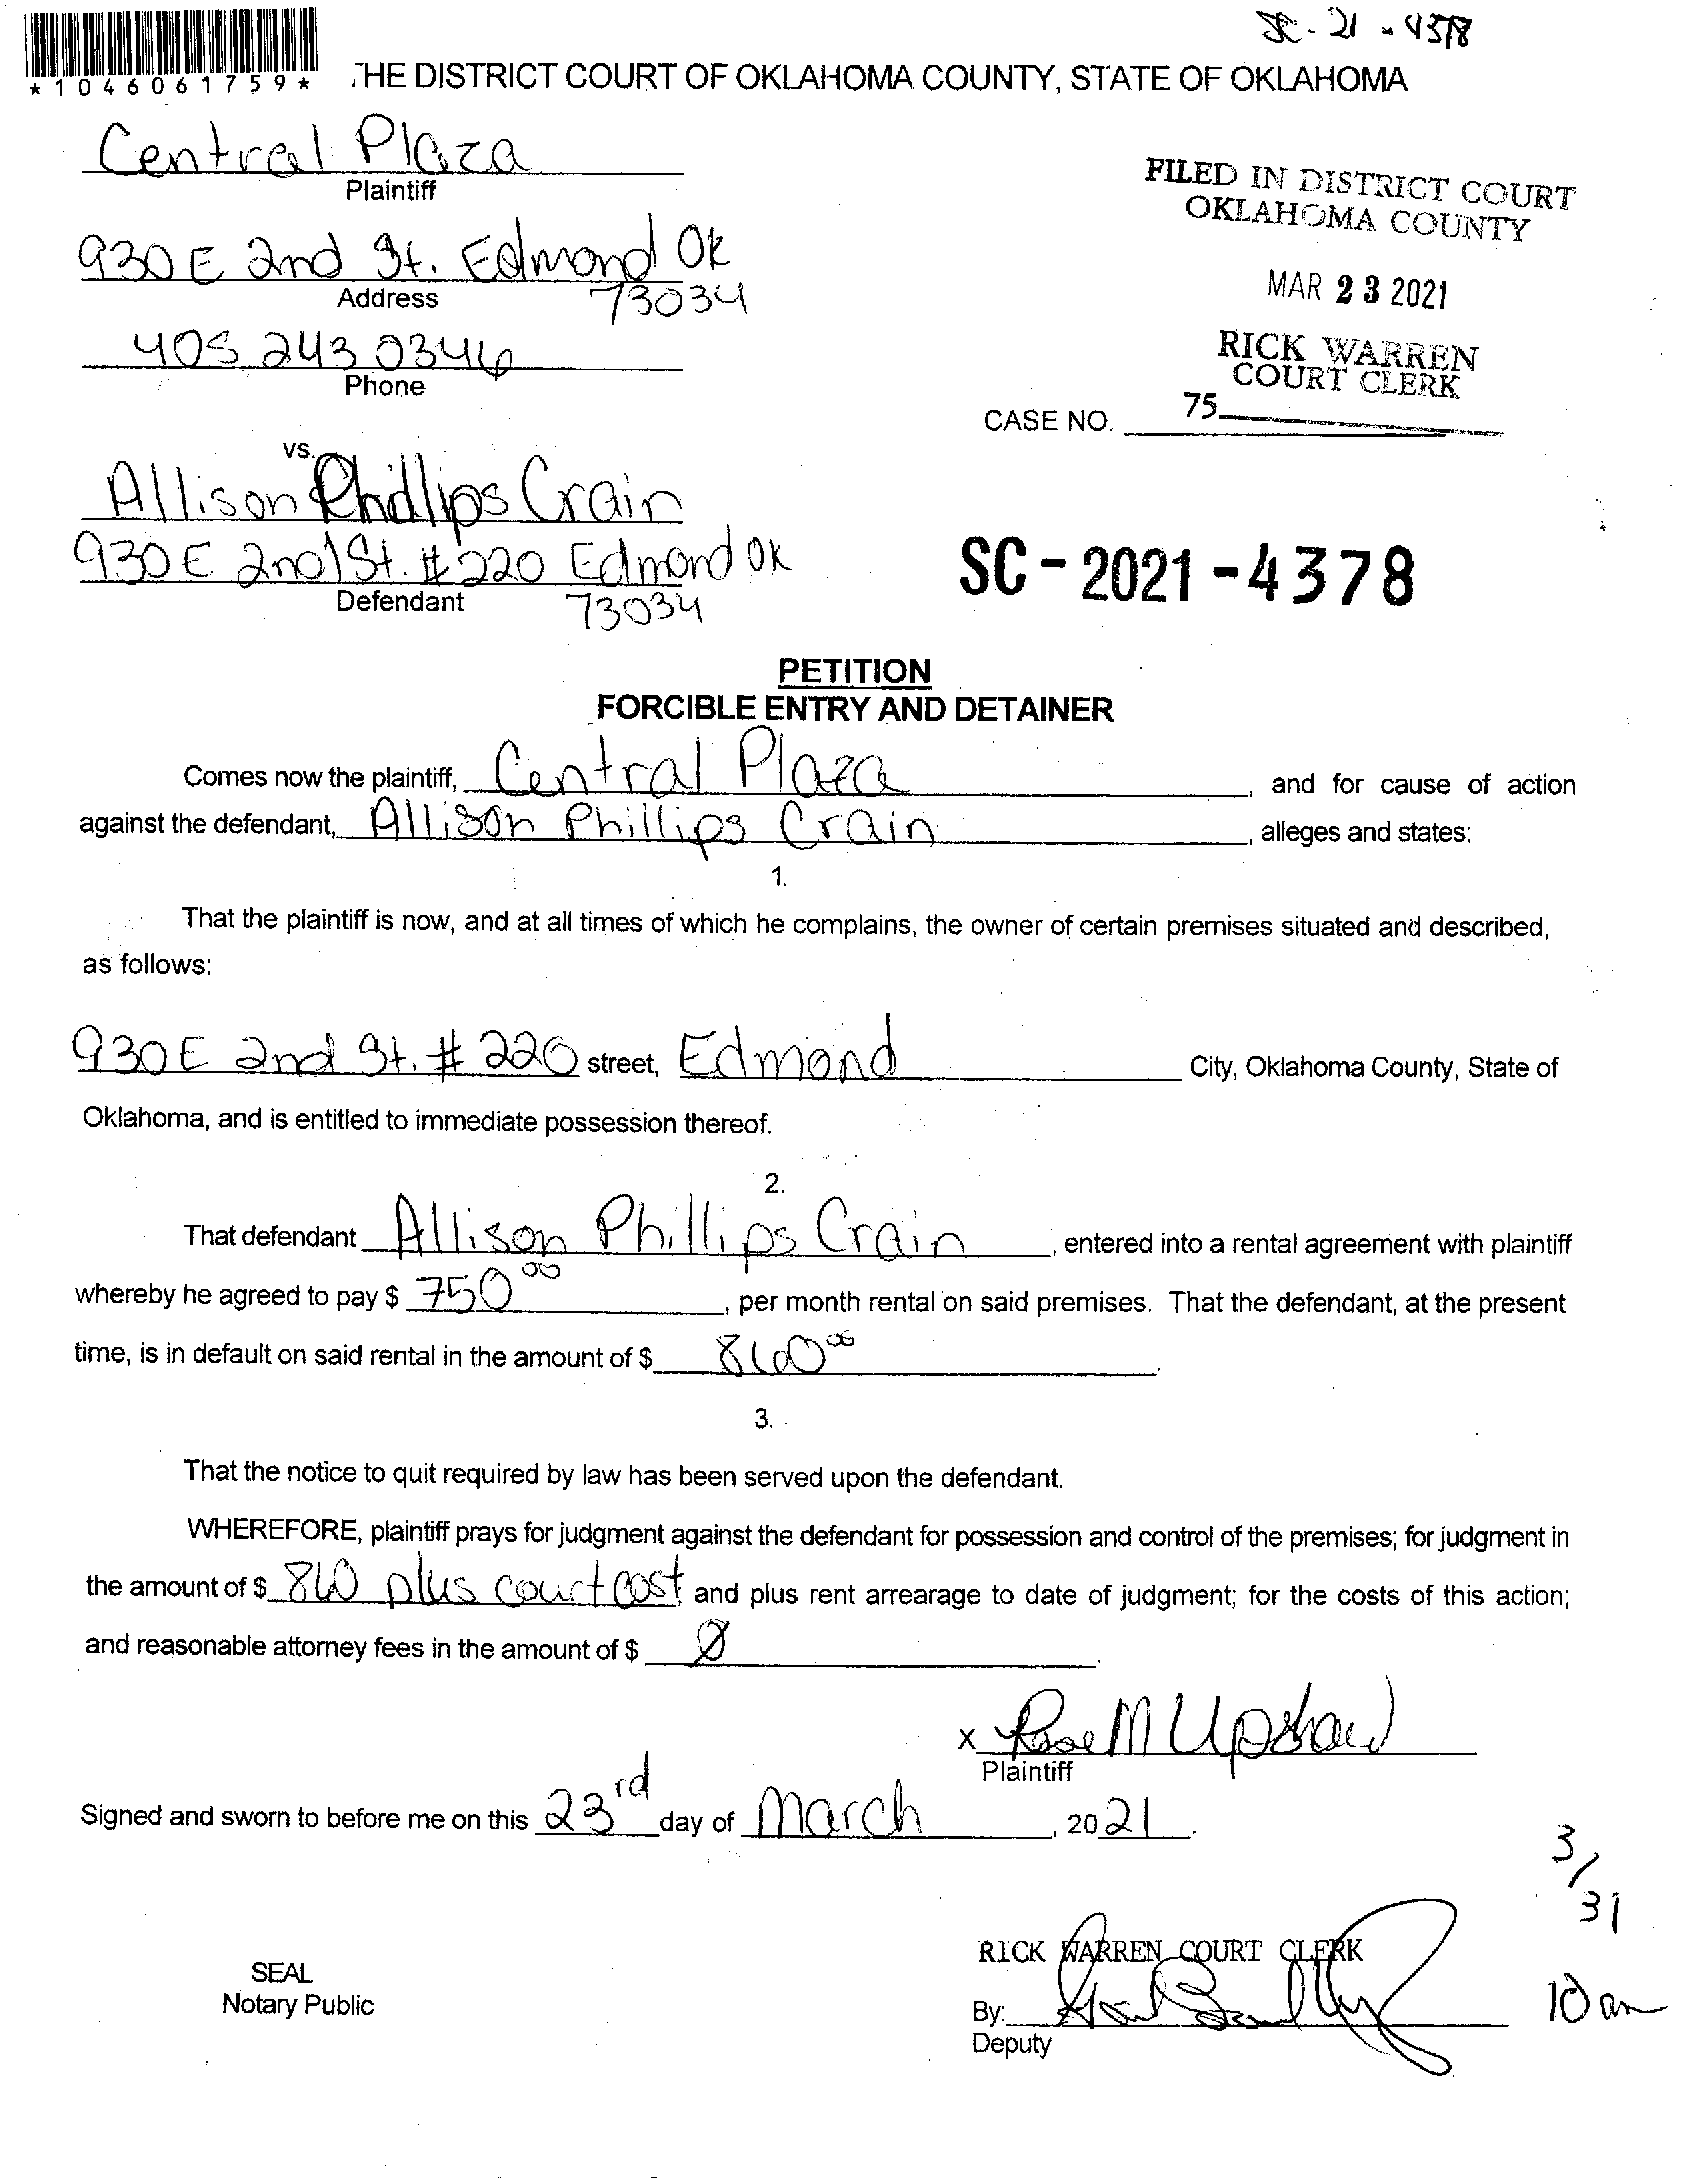 SC-21-4378
*1046061759*
THE DISTRICT COURT OF OKLAHOMA COUNTY, STATE OF OKLAHOMA
Central Plaza
Plaintiff
FILED IN DISTRICT COURT
OKLAHOMA COUNTY
930 E 2nd St. Edmond Ok
Address 73034
MAR 23 2021
405 243 0346
Phone
RICK WARREN
COURT CLERK
CASE NO. 75
vs.
Allison Phillips Crain
930 E 2nd St. #220 Edmond Ok
Defendant 73034
SC-2021-4378
PETITION
FORCIBLE ENTRY AND DETAINER
Comes now the plaintiff, Central Plaza, and for cause of action
against the defendant, Allison Phillips Crain, alleges and states:
1.
That the plaintiff is now, and at all times of which he complains, the owner of certain premises situated and described,
as follows:
930 E 2nd St. #220 street, Edmond City, Oklahoma County, State of
Oklahoma, and is entitled to immediate possession thereof.
2.
That defendant Allison Phillips Crain, entered into a rental agreement with plaintiff
whereby he agreed to pay $ 750 00, per month rental on said premises. That the defendant, at the present
time, is in default on said rental in the amount of $ 860 00.
3.
That the notice to quit required by law has been served upon the defendant.
WHEREFORE, plaintiff prays for judgment against the defendant for possession and control of the premises; for judgment in
the amount of $ 860 plus court cost and plus rent arrearage to date of judgment; for the costs of this action;
and reasonable attorney fees in the amount of $ 0.
x Rose M Upshaw
Plaintiff
Signed and sworn to before me on this 23rd day of March, 2021.
3/31
10 am
RICK WARREN COURT CLERK
SEAL
Notary Public
By:
Deputy